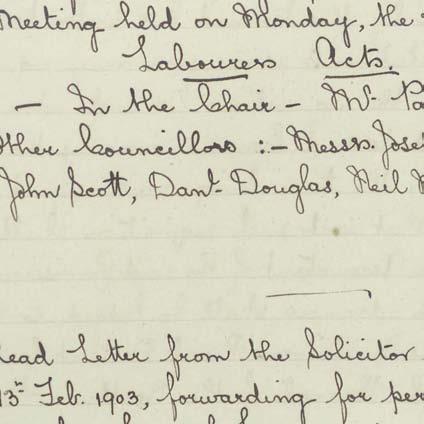 Meeting held on Monday, the
Labourers Acts.
— In the Chair — Mr. Pa
Other Councillors :— Messrs. Jose
John Scott, Danl. Douglas, Neil
Read Letter from the Solicitor
13th Feb. 1903, forwarding for per